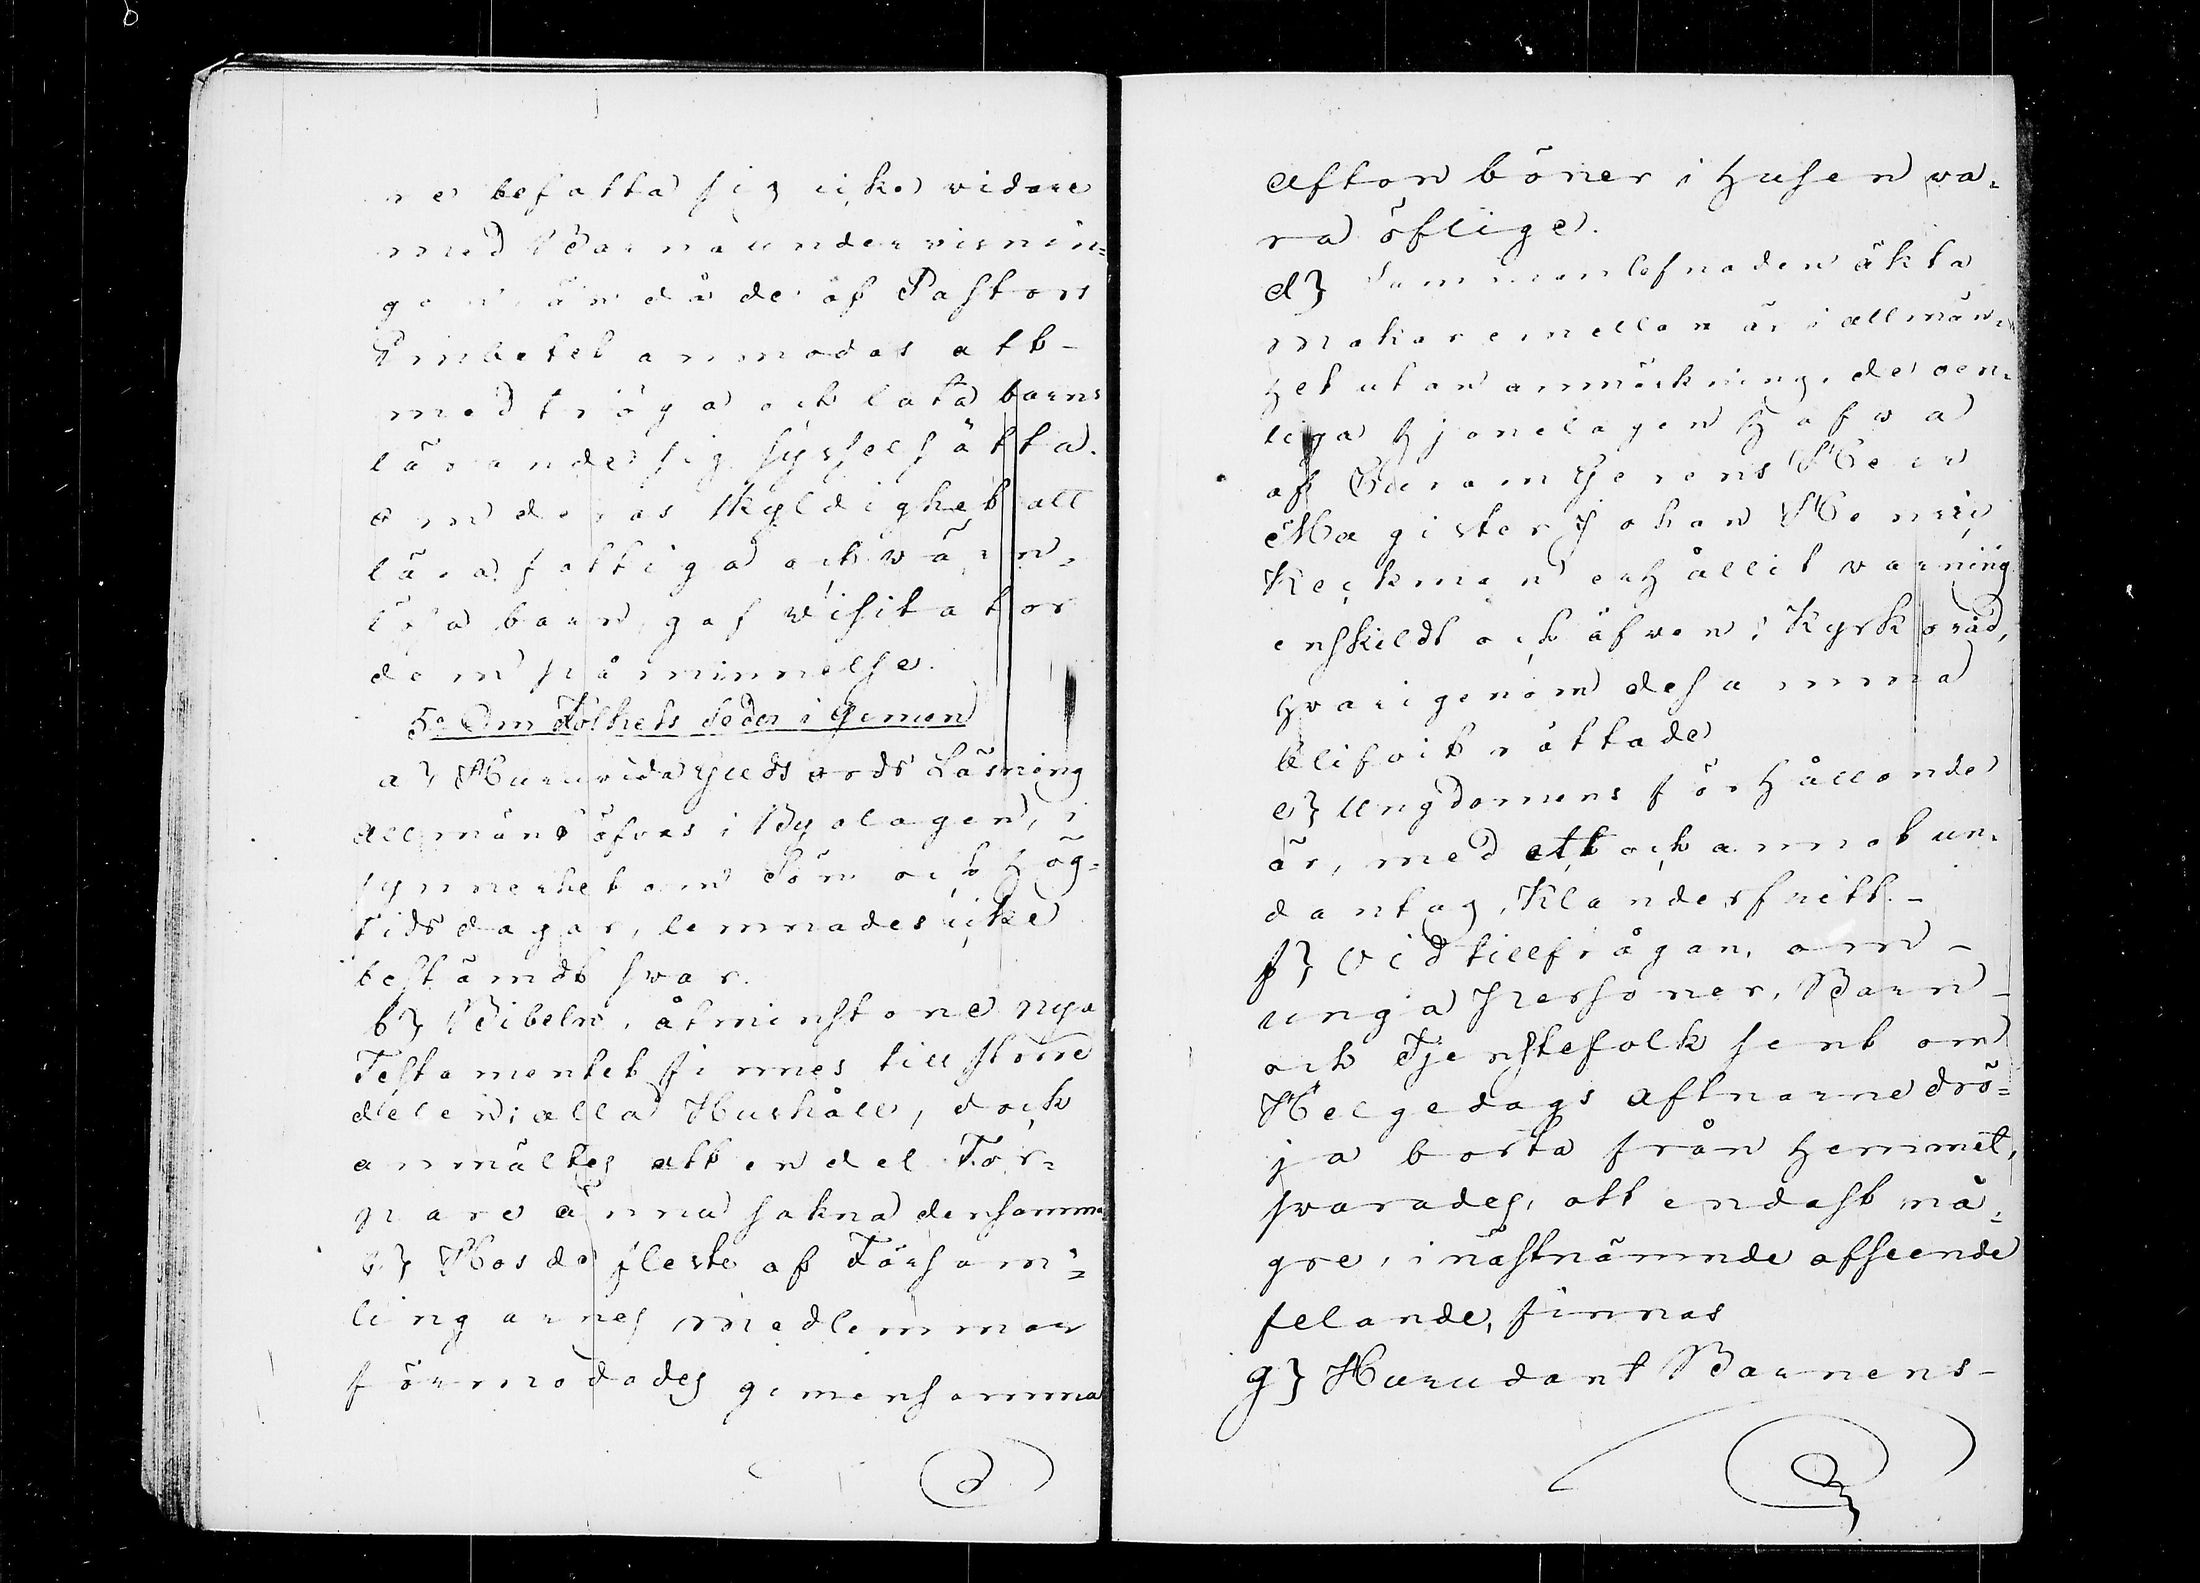 ne befatta sig icke vidare
med Barnaundervisnin=
gen än då de af Pastors
Embetet anmodas att-
med tröga och lata barns
lärande sig sysselsätta.
om deras skyldighet att
lära fattiga och värn=
lösa barn gaf Visitator
dem påminnelse.
5o Om Folkets Seder i Gemen
a} Huruvida Guds ords Läsning
allmänt öfvas i Byalagen, i
synnerhet om Sön och Hög=
tidsdagar, lemnades icke
bestämdt svar.
b} Bibeln, åtminstone nya
Testamentet finnes till störie
delen i alla Hushåll, dock
anmältes att en del Tor=
pare ännu sakna densamma
c} Hos de fleste af Församm=
lingarnes medlemmar
förmodades gemensamma
Afton böner i Husen va=
ra öflige.
d} Sammanlefnaden äkta
makar emellan är i allmän=
het utan anmärkning, de oen=
liga Hjonelagen Hafva
af Guarn Gerens Herr
Magister Johan Henric
Keckman erHållit varning
enskildt och äfven i Kyrkoråd,
Hvarigenom desamma
blifvit rättade
e} Ungdomens förHållande
är, med ett och annat un=
dantag, Klanderfritt.-
f} Vid tillfrågan, om-
unga Personer, Barn-
och Tjenstefolk sent om
Helgedags aftnarne drö=
ja borta från Hemmet,
svarades, att endast nå=
gre, i nästnämnde afseende
felande, finnas
g} Hurudant Barnens-